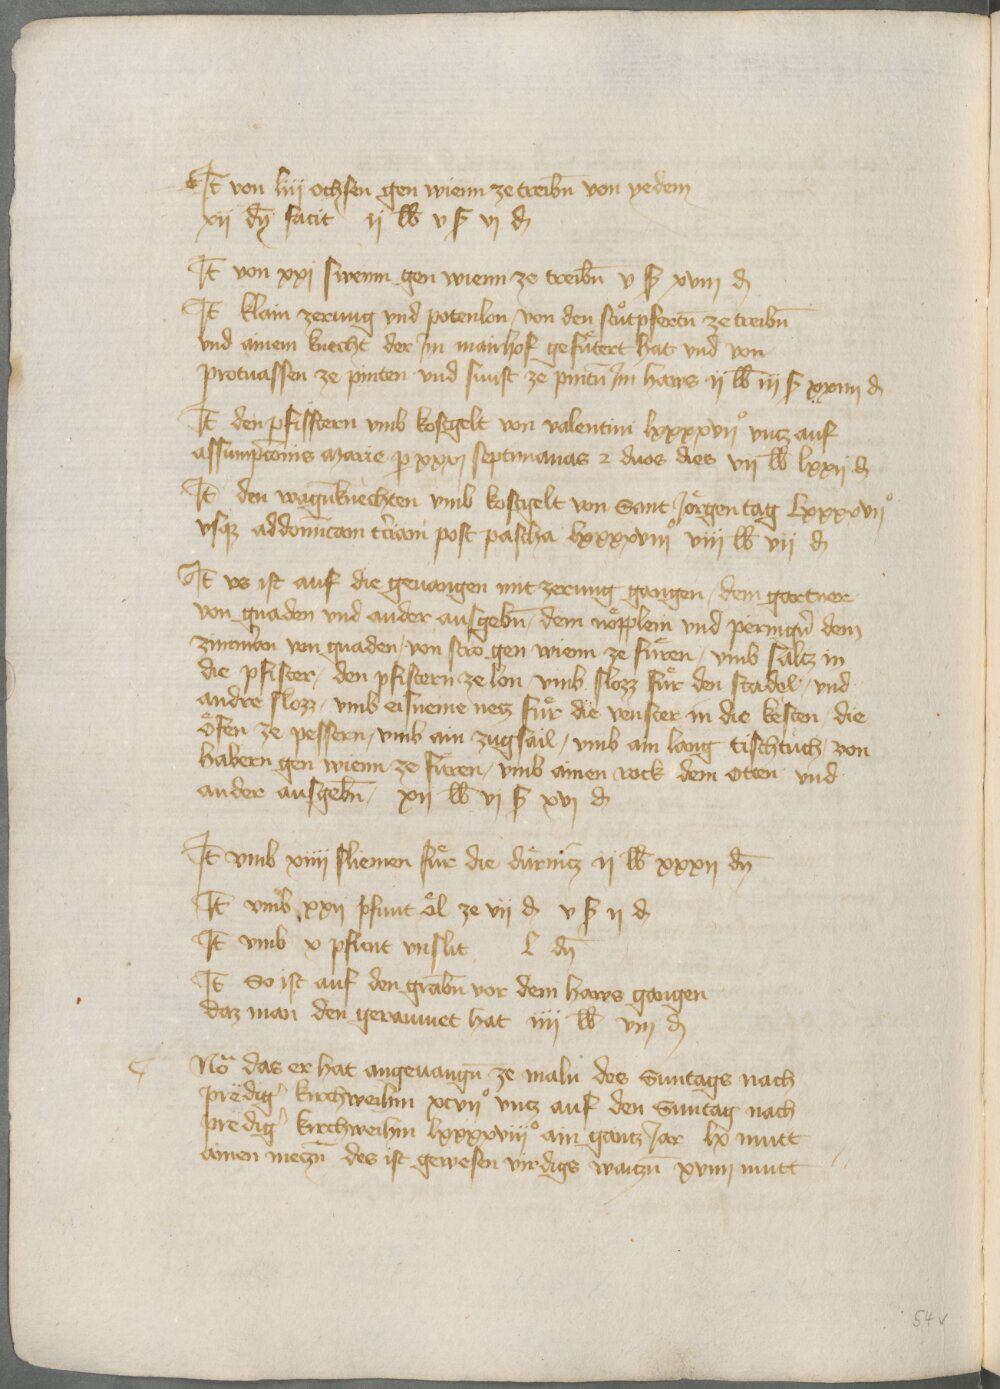 It̄ von liij ochsen gen wienn ze treibn̄ von yedem
xij dn̄ facit ij lb v ß vj d
It̄ von xxj swenn gen wienn ze treibn̄ v ß xviij d
It̄ klain zerung vnd potenlon / von den stůtpferten ze treibn̄
vnd ainem knecht der Jn mairhof gefůtert hat vnd von
protuassen ze pinten vnd sunst ze pintn̄ Jn haws ij lb iij ß xxiiij d
It̄ den pfistern vmb kostgelt von valentini lxxxxvij° vncz auf
assumpcōnis marie p xxvj septimanas 2 duos dies vij lb lxxij d
It̄ den wagnknechten vmb kostgelt von Sant Jörgen tag Lxxxxvij°
vsq₃ ad domīcam t'ciam post pascha lxxxxviij° viij lb vij d
It̄ es ist auf die geuangen mit zerung gangen / dem gartner
von gnaden vnd ander ausgebn̄ / dem nöpplein vnd peringn̄ dem
von gnaden / von stro gen wienn ze füren / vmb saltz in
die pfister / den pfistern ze lon / vmb slozz für den stadel / vnd
andre slozz / vmb eisneine netz für die venster in die kesten / die
öfen ze pessern / vmb ain zugsail / vmb ain lang tischtuch / von
habern gen wienn ze füren / vmb ainen rock dem otten vnd
ander ausgebn̄ / xij lb vj ß xvj d
It̄ vmb xiiij sliemen für die dürnitz ij lb xxxij dn̄
It̄ vmb xxij pfunt öl ze vij d v ß ij d
It̄ vmb x pfent vnslit L dn̄
It̄ So ist auf den grabn̄ vor dem haws gangen
daz man den geraumet hat iiij lb viij d
Nō das er hat angeuangn̄ ze maln des Suntags nach
predig' kirchweihin xcvij° vncz auf den Suntag nach
predig' kirchweihin lxxxxviij° ain gantz Jar lx mutt
ainen metzn̄ des ist gewesen virdigs waitzn̄ xviiij mutt
54v